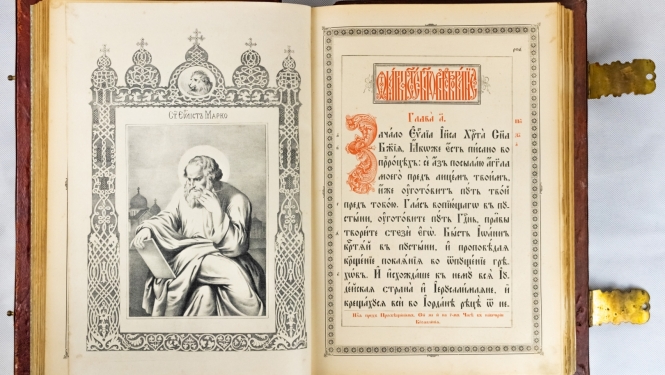 СТ҃. ЕѴⷢ҇ЛИСТЪ МАРКО
Глава̀ а҃.
Зача́ло Еѵⷢ҇лїѧ І҆и҃са Хрⷭ҇та̀ Сн҃а
Бж҃їѧ. Ꙗ҆́коже є҆́сть пи́сано во
прⷪ҇ро́цѣхъ: сѐ а҆́зъ посыла́ю а҆́гг҃ла
моего̀ пред̾ лице́мъ твои́мъ,
и҆́же ᲂу҆гото́витъ пꙋ́ть тво́й
пред̾ тобо́ю. Гла́съ вопїю́щагѡ въ пꙋ-
сты́ни, ᲂу҆гото́вите пꙋ́ть Гдⷭ҇нь, пра̑вы
твори́те стєзѝ є҆гѡ̀. Бы́сть І҆ѡа́ннъ
крⷭ҇тѧ́й въ пꙋсты́ни, и҆ проповѣ́даѧ
крⷭ҇ще́нїе покаѧ́нїѧ во ѿпꙋще́нїе грѣ-
хѡ́въ. И҆ и҆схожда́ше къ немꙋ̀ всѧ̀ І҆ꙋ-
де́йскаѧ страна̀ и҆ І҆ерⷭ҇ли́млѧне, и҆
креща́хꙋсѧ всѝ во І҆ѻрда́нѣ рѣцѣ̀ ѿ не-